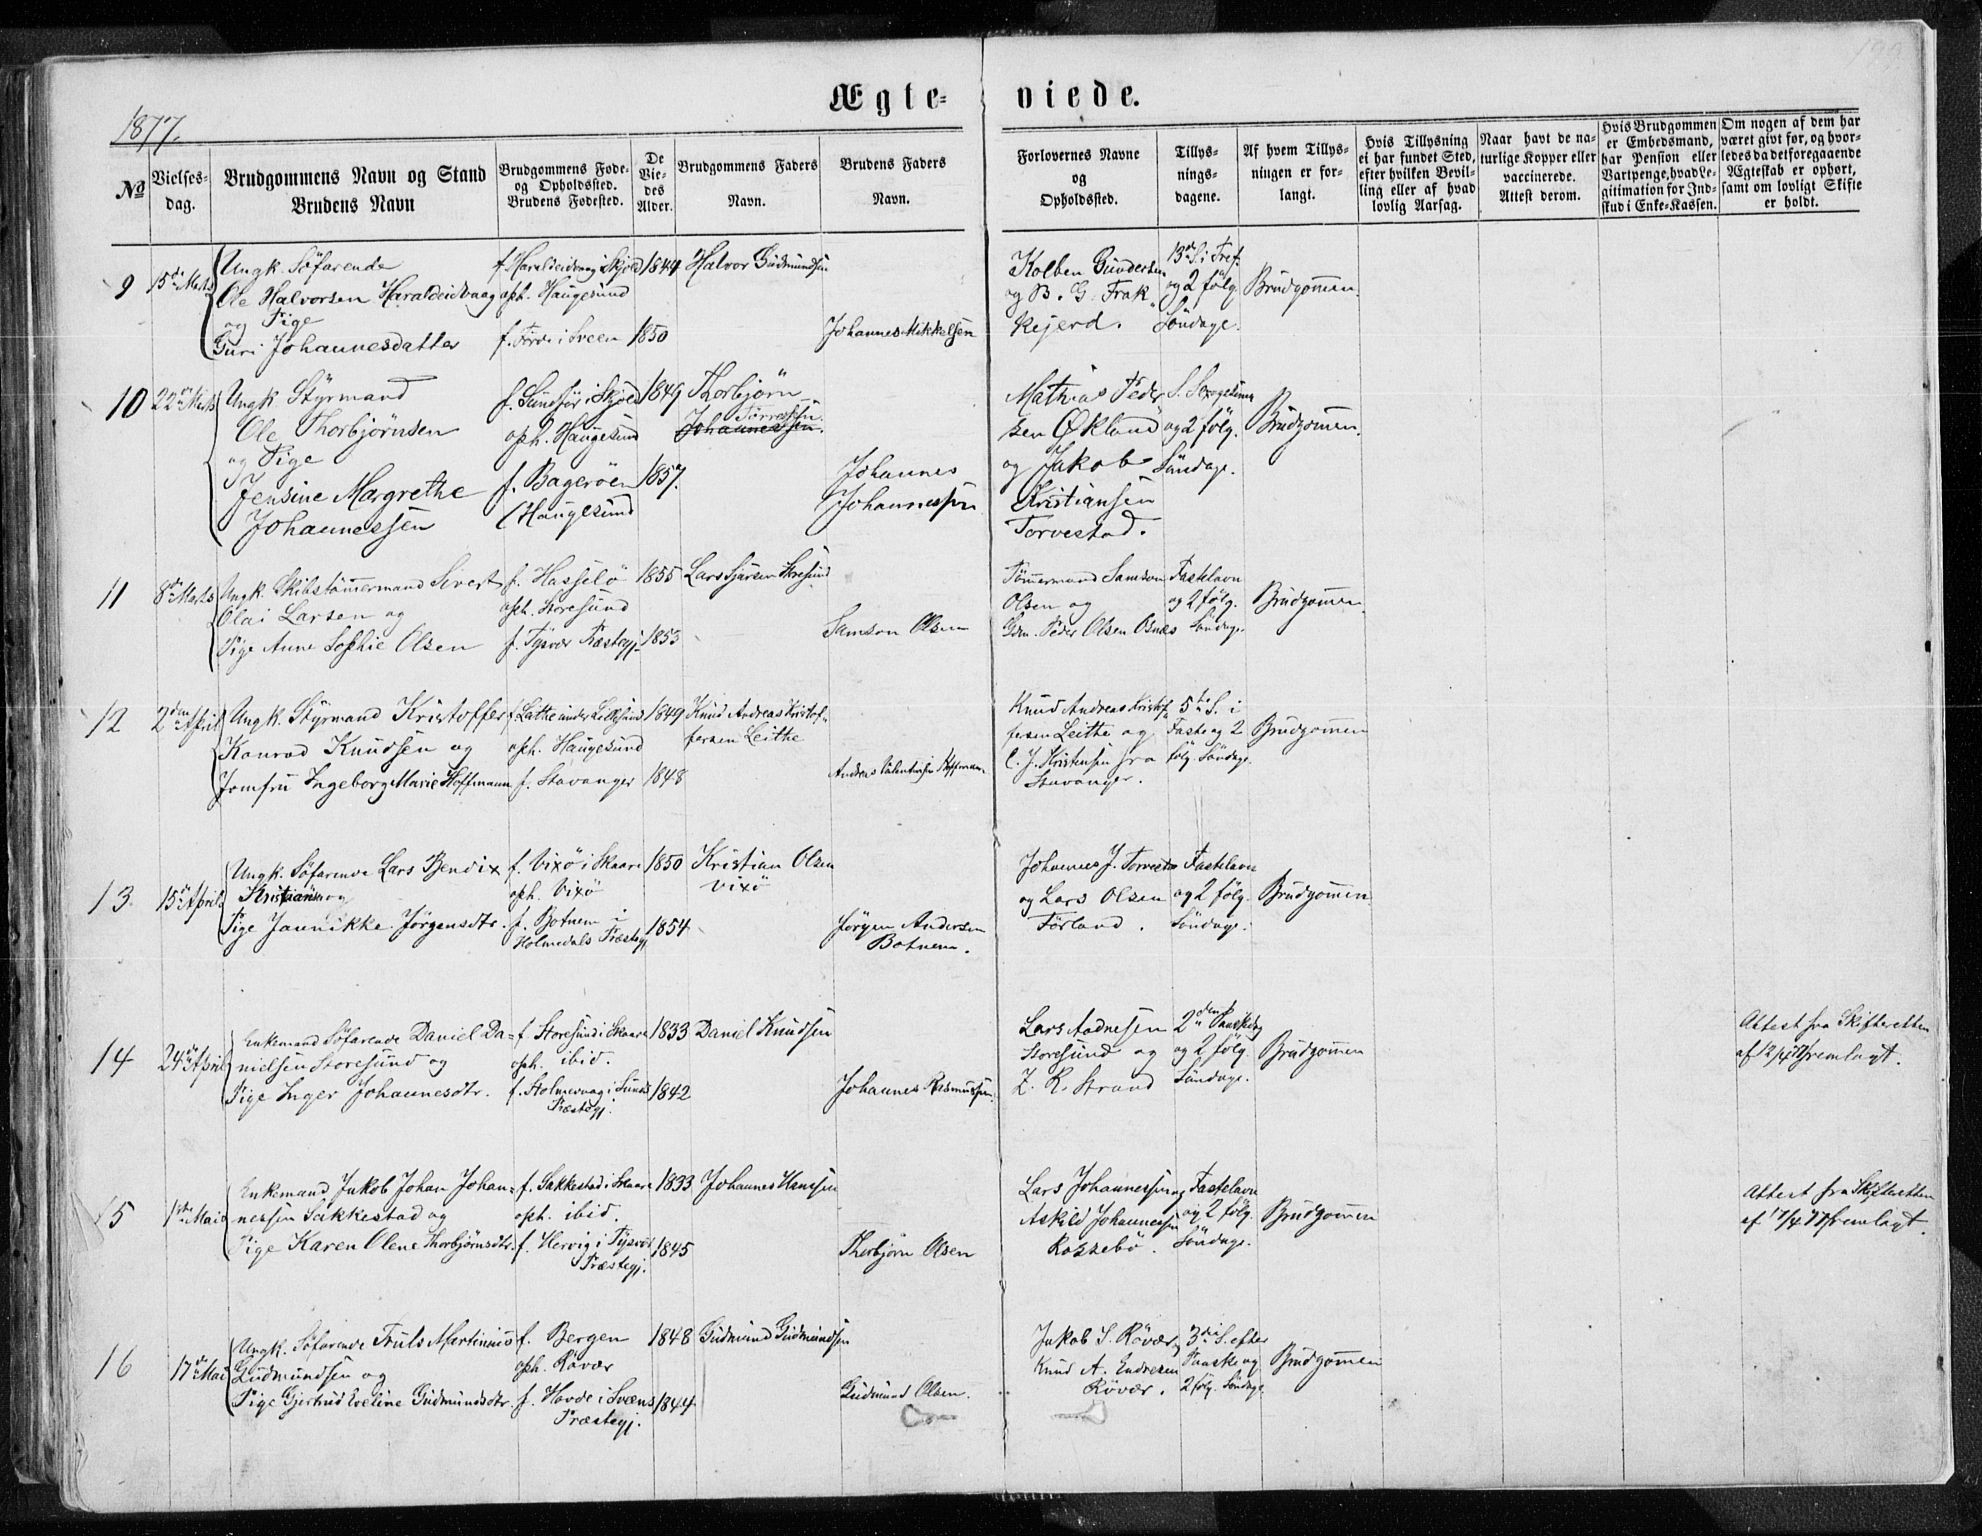 199.
Ægte-
viede.
1877.
No
Vielses-
dag.
Brudgommens Navn og Stand
Brudens Navn
Brudgommens Føde-
og Opholdssted.
Brudens Fødested.
De
Vie-
des
Alder.
Brudgommens Faders
Navn.
Brudens Faders
Navn.
Forlovernes Navne
og
Opholdssted.
Tillys-
nings-
dagene.
Af hvem Tillys-
ningen er for-
langt.
Hvis Tillysning
ei har fundet Sted,
efter hvilken Bevil-
ling eller af hvad
lovlig Aarsag.
Naar havt de na-
turlige Kopper eller
vaccinerede.
Attest derom.
Hvis Brudgommen
er Embedsmand,
har Pension eller
Vartpenge, hvad Le-
gitimation for Ind-
skud i Enke-Kassen.
Om nogen af dem har
været givt før, og hvor-
ledes da det foregaaende
Ægteskab er ophørt,
samt om lovligt Skifte
er holdt.
9
15de Marts
Ungk. Söfarende
Ole Halvorsen Haraldeidvaag
og Pige
Guri Johannesdatter
f. Haraldeidvaag i Skjold
oph. Haugesund
f. Förde i Sveen
1844
1850
Halvor Gudmundsen
Johannes Mikkelsen
Kolben Gundersen
og B. G. Frak-
kejerd.
13de S. i Tref.
og 2 følg.
Söndage.
Brudgommen.
10
22de Marts
Ungk. Styrmand
Ole Thorbjörnsen
og Pige
Jensine Margrethe
Johannessen
f. Sundför i Skjold
oph. Haugesund
f. Bageröen
(Haugesund
1849
1857.
Thorbjörn
Törressen.
Johannessen.
Johannes
Johannessen
Mathias Peder
sen Ökland
og Jakob
Kristiansen
Torvestad.
S. Sexagesima
og 2 følg.
Söndage.
Brudgommen.
11
8de Marts
Ungk. Skibstömmermand Sivert
Olai Larsen og
Pige Anne Sophie Olsen
f. Hasselö
oph. Storesund
f. Tysvær Præstegj.
1855
1853
Lars Sjursen Storesund
Samson Olsen
Tömmermand Samson
Olsen og
Gdm. Peder Olsen Osnes
Fastelavn
og 2 følg.
Söndage.
Brudgommen.
12
2den April
Ungk. Styrmand Kristoffer
Konrad Knudsen og
Jomfru Ingeborg Marie Hoffmann
oph. Haugesund
f. Stavanger
1849
1848
Knud Andreas Kristof-
fersen Leithe
Andreas Valentinsen Hoffmann.
Knud Andreas Kristof-
fersen Leithe og
C. J. Kristensen fra
Stavanger.
5te S. i
Faste og 2
følg. Söndage.
Brudgommen
13
15de April
Ungk. Söfarende Lars Bendix
Kristiansen og
Pige Jannikke Jörgensdtr.
f. Vixö i Skaare
oph. Vixö
f. Botnem i
Holmedals Præstegj.
1850
1854
Kristian Olsen
Vixö
Jörgen Andersen
Botnem.
Johannes J. Torvestad
og Lars Olsen
Förland.
Fastelavn
og 2 følg.
Söndage.
Brudgommen
14
24de April
Enkemand Söfarende Daniel Da-
nielsen Storesund og
Pige Inger Johannesdtr.
f. Storesund i Skaare
oph. ibid.
f. Holmevaag i Sunds
Præstegj.
1833
1842
Daniel Knudsen
Johannes Rasmussen.
Lars Aadnesen
Storesund og
Z. R. Strand
2den Paaskedag
og 2 følg.
Söndage.
Brudgommen
Attest fra Skifteretten
af 12/4 77 fremlagt.
15
1ste Mai
Enkemand Jakob Johan Johan-
nessen Sakkestad og
Pige Karen Olene Thorbjörnsdtr.
f. Sakkestad i Skaare
oph. ibid.
f. Hervig i Tysvær
Præstegj.
1833
1845
Johannes Hansen
Thorbjörn Olsen
Lars Johannessen og
Askild Johannessen
Rossebö.
Fastelavn
og 2 følg.
Söndage.
Brudgommen
Attest fra Skifteretten
af 17/4 77 fremlagt.
16
17de Mai
Ungk. Söfarende Truls Martinius
Gudmundsen og
Pige Gjertrud Eveline Gudmundsdtr.
f. Bergen
oph. Rövær
f. Hovde i Sveens
Præstegj.
1848
1844
Gudmund Gudmundsen
Gudmund Olsen.
Jakob S. Rövær,
Knud A. Endresen
Rövær.
3die S. efter
Paaske og
2 følg. Söndage.
Brudgommen